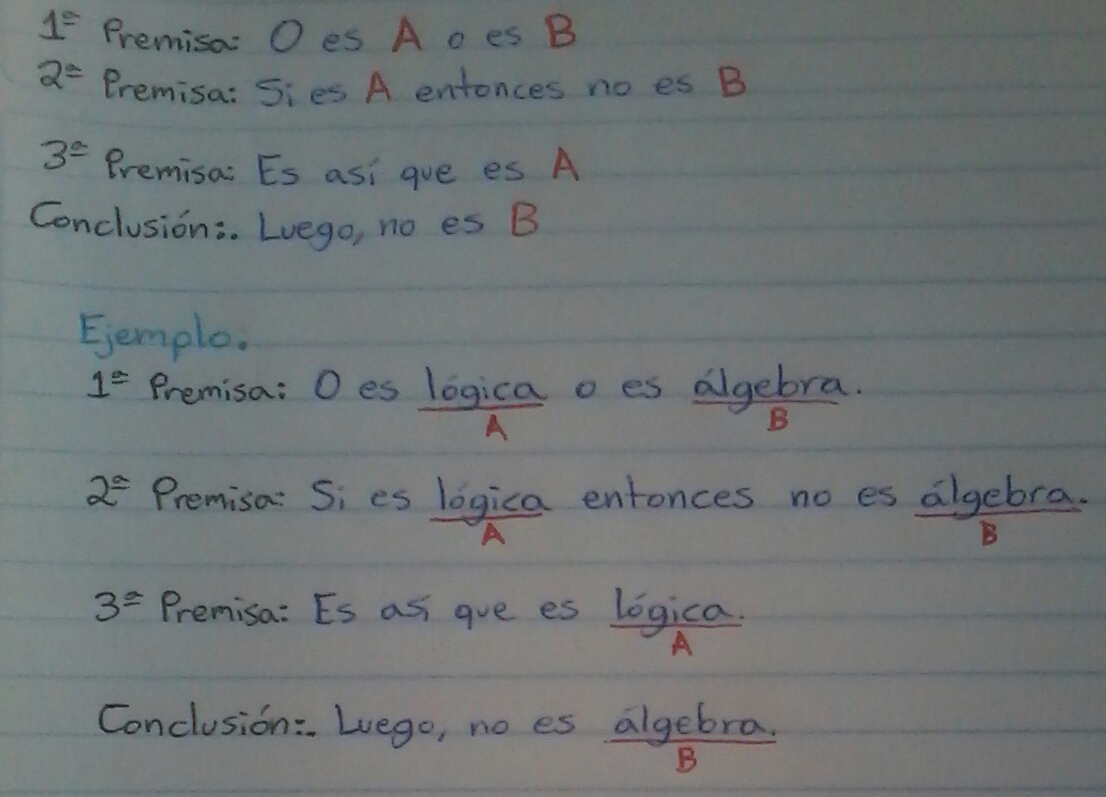 1ª Premisa: O es A o es B
2ª Premisa: Si es A entonces no es B
3ª Premisa: Es así que es A
Conclusión:. Luego, no es B
Ejemplo:
1ª Premisa: O es lógica o es álgebra.
A B
2ª Premisa: Si es lógica entonces no es álgebra.
A B
3ª Premisa: Es así que es lógica.
A
Conclusión:. Luego, no es álgebra.
B